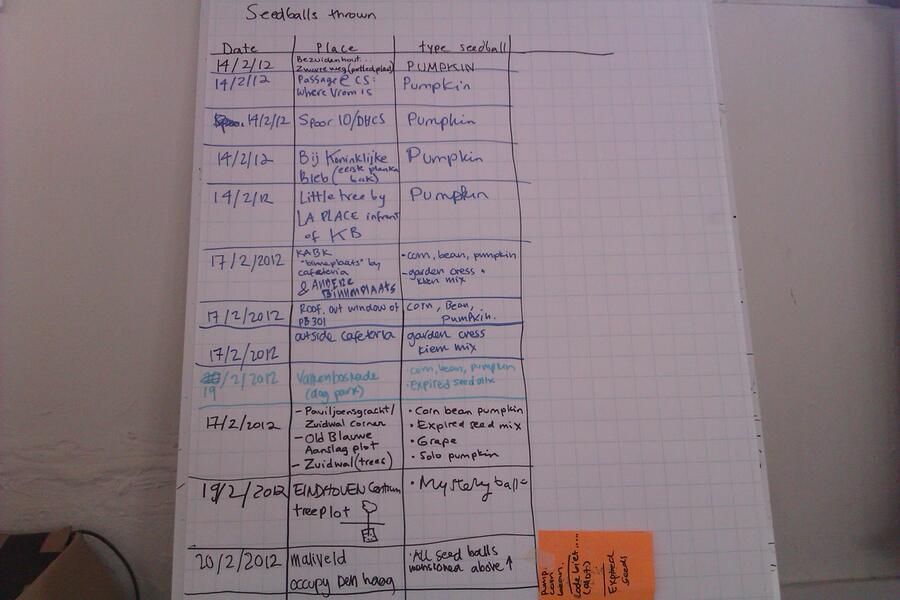 Seedballs thrown
Date Place type seedball
14/2/12 Bezuidenhout... PUMPKIN
Zwarteweg
14/2/12 Passage @ CS: Pumpkin
where Vrom is
14/2/12 Spoor 10/DHCS Pumpkin
14/2/12 Bij Koninklijke Pumpkin
Bieb (eerste
bak)
14/2/12 Little tree by Pumpkin
LA PLACE infront
of KB
17/2/2012 KABK · corn, bean, pumpkin
"binneplaats" by
cafeteria - garden cress +
& ANDERE kiem mix
17/2/2012 Roof. out window of corn, Bean,
PB301 Pumpkin.
outside cafeteria garden cress
17/2/2012 kiem mix
19/2/2012 Valkenboskade · corn, bean, pumpkin
(dog park) · Expired seed mix
17/2/2012 - Paviljoensgracht/ · Corn bean pumpkin
Zuidwal corner · Expired seed mix
- Old Blauwe · Grape
Aanslag plot · Solo pumpkin
- Zuidwal (trees)
19/2/2012 EINDHOVEN Centrum · Mystery balls
tree plot
20/2/2012 maliveld · All seed balls
occupy Den haag mensioned above ↑
pump.
corn
bean.
Expired
seeds